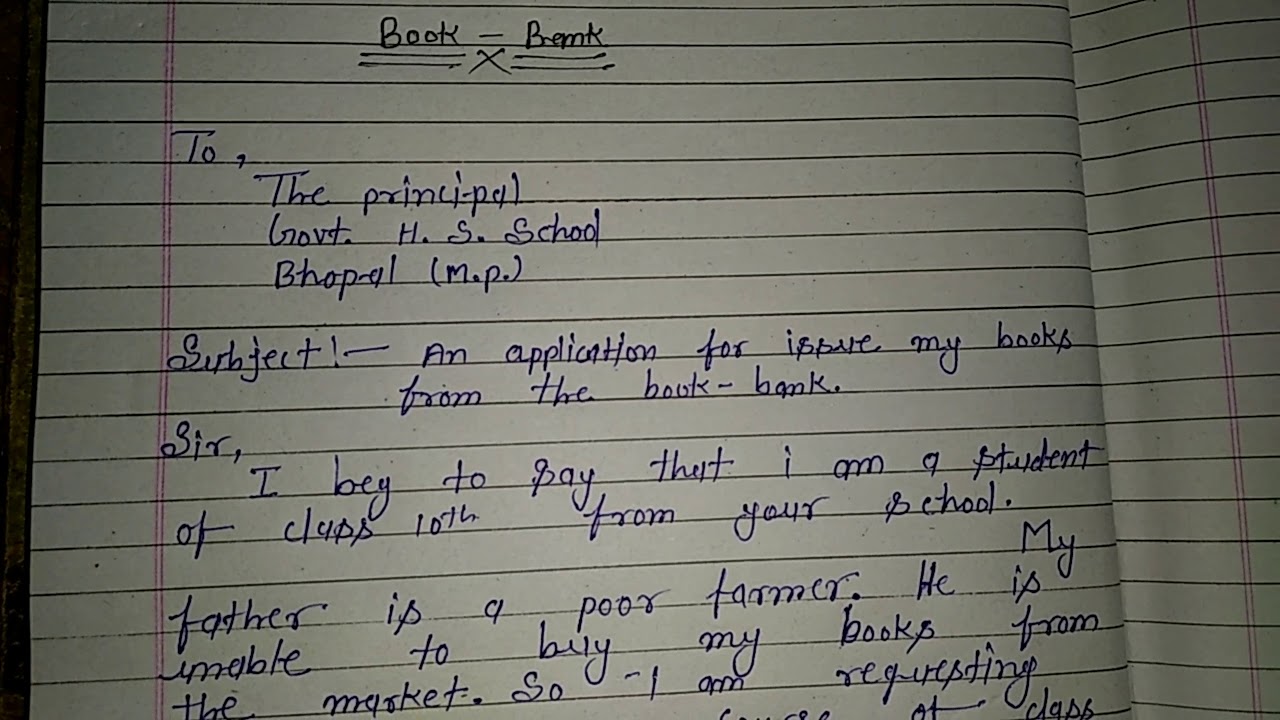 Book - Bank
To,
The principal
Govt. H. S. School
Bhopal (M.p.)
Subject!— An application for issue my books
from the book-bank.
Sir,
I beg to say that i am a student
of class 10th from your school.
My
father is a poor farmer. He is
unable to buy my books from
the market. So I am requesting
of class